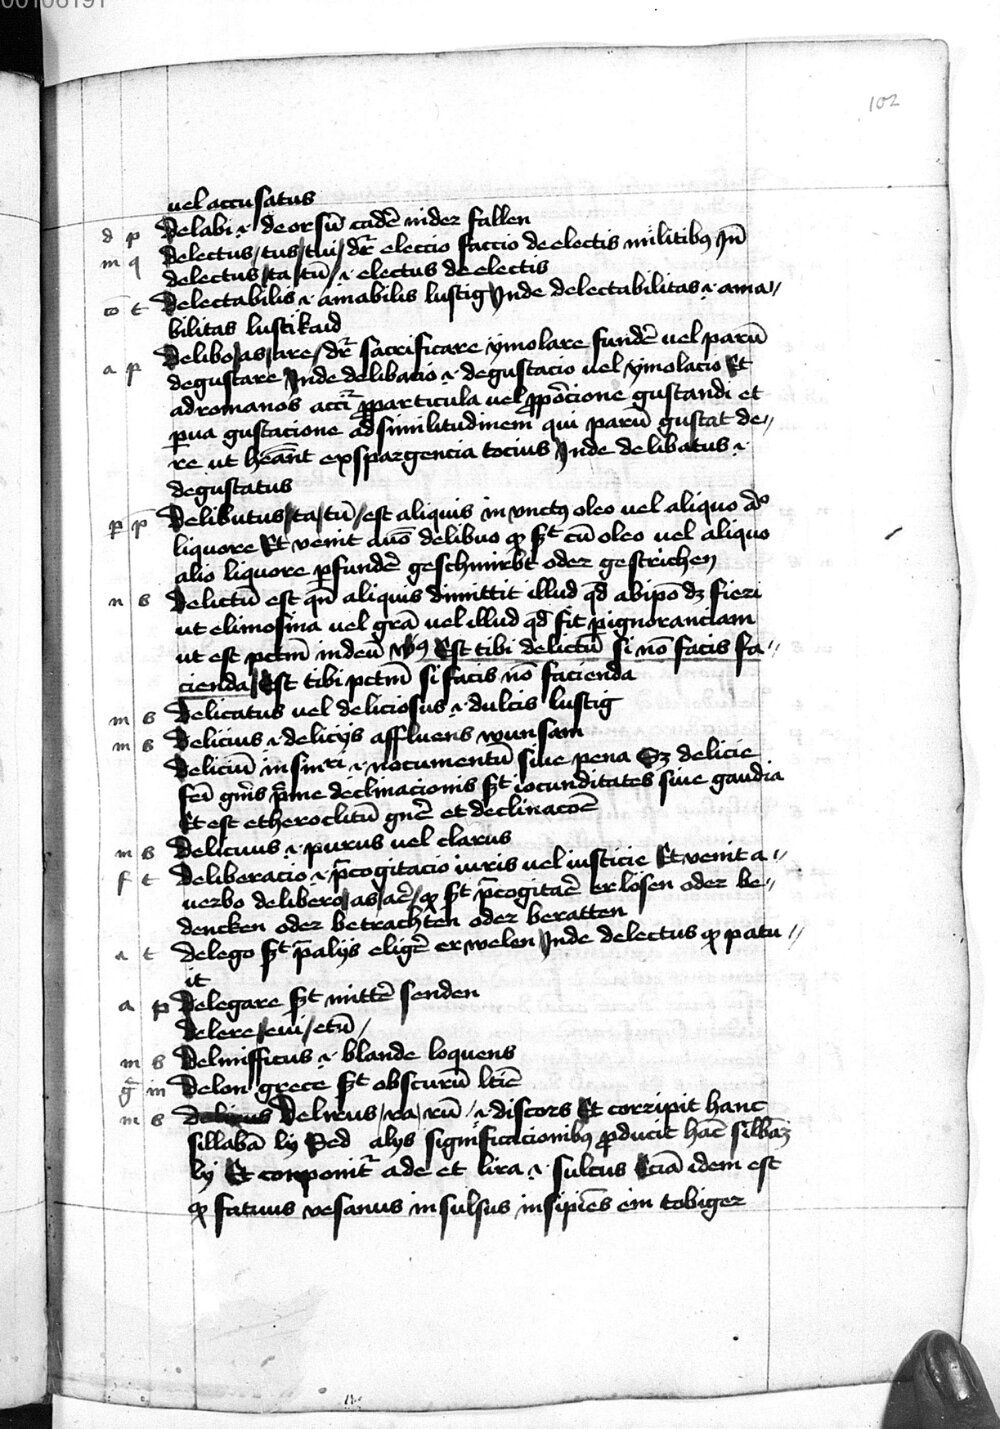 00106191
102
vel accusatus
d p Delabi .i. deorsū cadē nider fallen
m q Delectus / tus / tui / dr̄ eleccio faccio de electis militibꝯ Jn̄
delectus / ta / tū / .i. electus de electis
cō t Delectabilis .i. amabilis lustig Jnde delectabilitas .i. ama//
bilitas lustikaid
a p Delibo / as / are / dr̄ sacrificare ymolare fundē vel parū
degustare Jnde delibacio .i. degustacio vel ymolacio Et
ad romanos particula vel gustandi et
ꝑua gustacione ad similitudinem qui parū gustat de//
re ut exspargencia tocius Jnde delibatus .i.
degustatus
ꝑ p̄ Delibutus / ta / tū / est aliquis in vnctꝯ oleo vel aliquo
liquore Et venit delibuo ꝙ st̄ cū oleo vel aliquo
alio liquore ꝑfundē geschmirbt oder gestrichen
n s Delictū est qn̄ aliquis dimittit illud qd̄ ab ipo dꝫ fieri
ut elimosina vel grā vel illud qd̄ fit ꝑ ignoranciam
ut est pctm̄ in deū Est tibi delictū si nō facis fa//
cienda / Est tibi pctm̄ si facis nō facienda
m s Delicatus vel deliciosus .i. dulcis lustig
m s Delicius .i. delicijs affluens wunsam
Deliciū in sin̄ri .i. nocumentū siue pena Sꝫ delicie
fēi gn̄is p̄me declinacionis st̄ iocunditates siue gaudia
Et est etheroclitū gn̄e et declinacōe
m s Delicuus .i. purus vel clarus
f t Deliberacio .i. p̄cogitacio iuris vel iusticie Et venit a//
verbo delibero / as / aē / ꝙ st̄ p̄cogitaē erlösen oder be//
dencken oder betrachten oder beratten
a t delego st̄ p̄ alijs eligē erwelen Jnde delectus ꝙ patu//
it
a p Delegare st̄ mittē senden
delere / eui / etū /
m s Delinifficus .i. blande loquens
ḡ in Delon grece st̄ obscurū ltīe
m s Delirus / ra / rū / .i. discors Et corripit hanc
sillabā ly Sed alys significacionibꝯ ꝓducit hāc sillbāꝫ
ly Et conponitr̄ a de et lira .i. sulcus Eciā idem est
ꝙ fatuus vesanus insulsus insipiēs ein tobiger